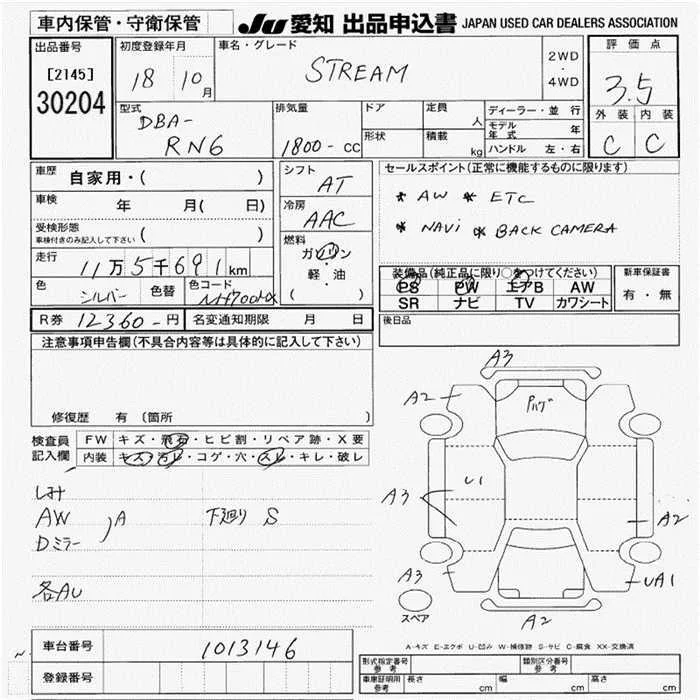 車内保管・守衛保管
JU 愛知 出品申込書 JAPAN USED CAR DEALERS ASSOCIATION
出品番号
[2145]
30204
初度登録年月
18 10月
車名・グレード
STREAM
2WD
・
4WD
評価点
3.5
外装 内装
C C
型式
DBA-
RN6
排気量
1800-cc
ドア
形状
定員 人
積載 kg
ディーラー・並行
モデル年式 年
ハンドル 左・右
車歴 自家用・( )
車検 年 月( 日)
受検形態
車検付きのみ記入して下さい ( )
走行 11万5千691km
色 シルバー 色替 色コード
シフト
AT
冷房
AAC
燃料
ガソリン
軽・油
( )
セールスポイント(正常に機能するものに限ります)
* AW * ETC
* NAVi * BACK CAMERA
装備品(純正品に限り○をつけてください)
PS PW エアB AW
SR ナビ TV カワシート
新車保証書
有・無
R券 12360-円 名変通知期限 月 日
後日品
注意事項申告欄(不具合内容等は具体的に記入して下さい)
修復歴 有 〔箇所 〕
検査員
記入欄
FW キズ・飛石・ヒビ割・リペア跡・X要
内装 キズ・汚レ・コゲ・穴・スレ・キレ・破レ
しみ
AW
Dミラー
A
下廻り S
各AU
A3
A2
A3
U1
A2
A3
UA1
A2
スペア
A-キズ E-エクボ U-凹み W-補修跡 S-サビ C-腐食 XX-交換済
車台番号 1013146
登録番号
型式指定番号 参考
類別区分番号 参考
車庫証明用 参考 長さ cm 幅 cm 高さ cm